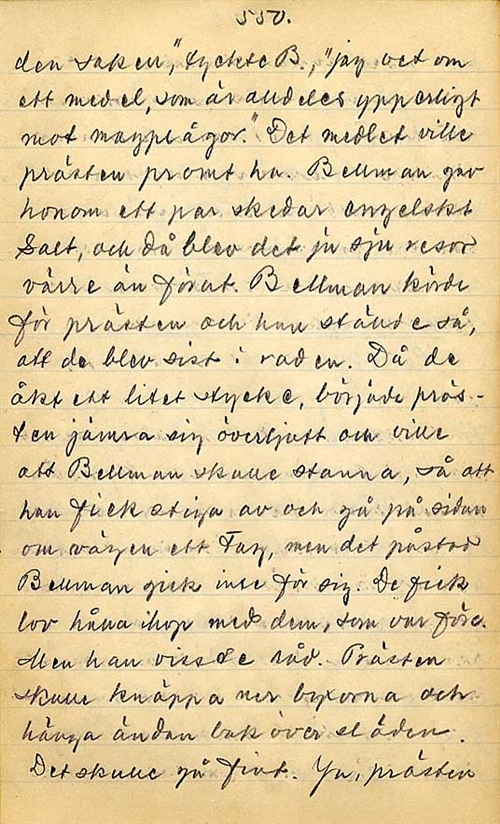 550.
den saken", tyckte B., "jag vet om
ett medel, som är alldeles ypperligt
mot magplågor." Det medlet ville
prästen promt ha. Bellman gav
honom ett par skedar engelskt
Salt, och då blev det ju sju resor
värre än förut. Bellman körde
för prästen och han stände så,
att de blev sist i raden. Då de
åkt ett litet stycke, började präs-
ten jämra sig överljutt och ville
att Bellman skulle stanna, så att
han fick stiga av och gå på sidan
om vägen ett Tag, men det påstod
Bellman gick inte för sig. De fick
lov hålla ihop med dem, som var före.
Men han visste råd. Prästen
skulle knäppa ner byxorna och
hänga ändan bak över släden.
Det skulle gå fint. Ja, prästen